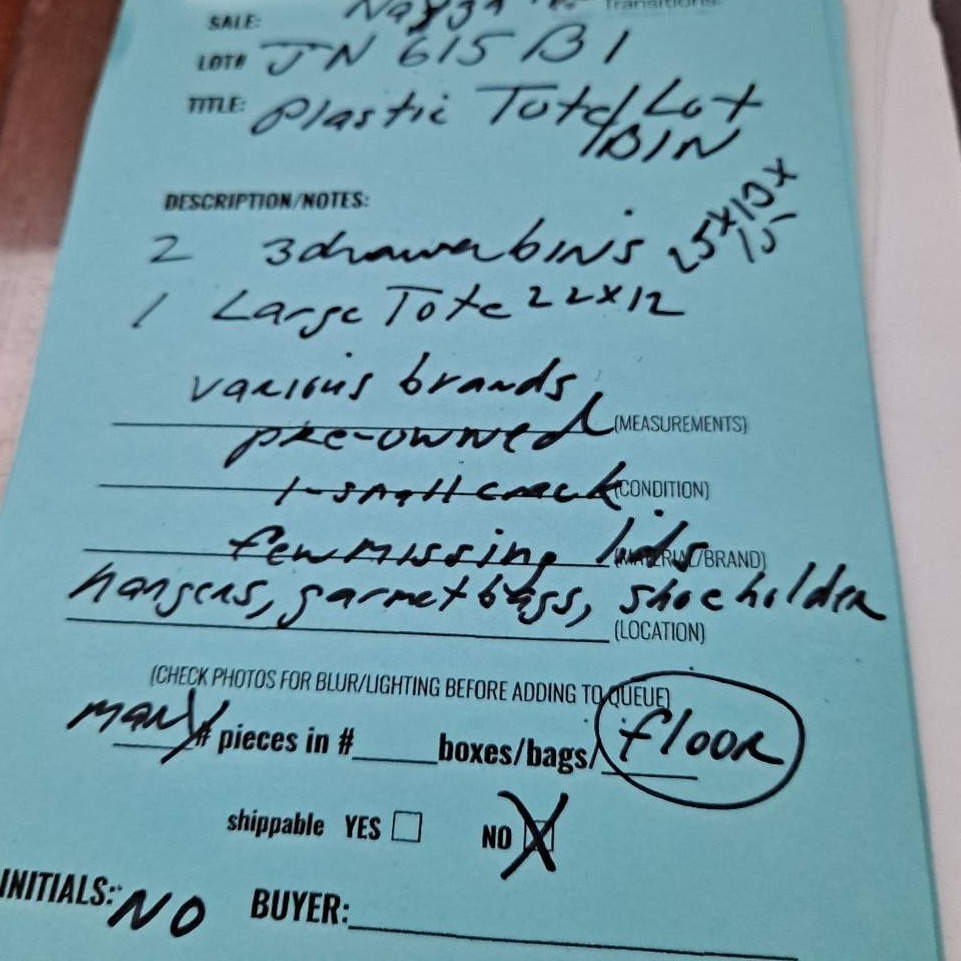 Transitions
SALE:
LOT# JN 615 B1
TITLE: Plastic Tote/Lot
BIN
DESCRIPTION/NOTES:
2 3 drawer bins 25x13x
15
1 Large Tote 22x12
various brands
(MEASUREMENTS)
pre-owned
1-small crack (CONDITION)
few missing lids (MATERIAL/BRAND)
hangers, garmet bags, shoe holder
(LOCATION)
(CHECK PHOTOS FOR BLUR/LIGHTING BEFORE ADDING TO QUEUE)
many # pieces in #____ boxes/bags/ floor
shippable YES NO X
INITIALS: NO BUYER: